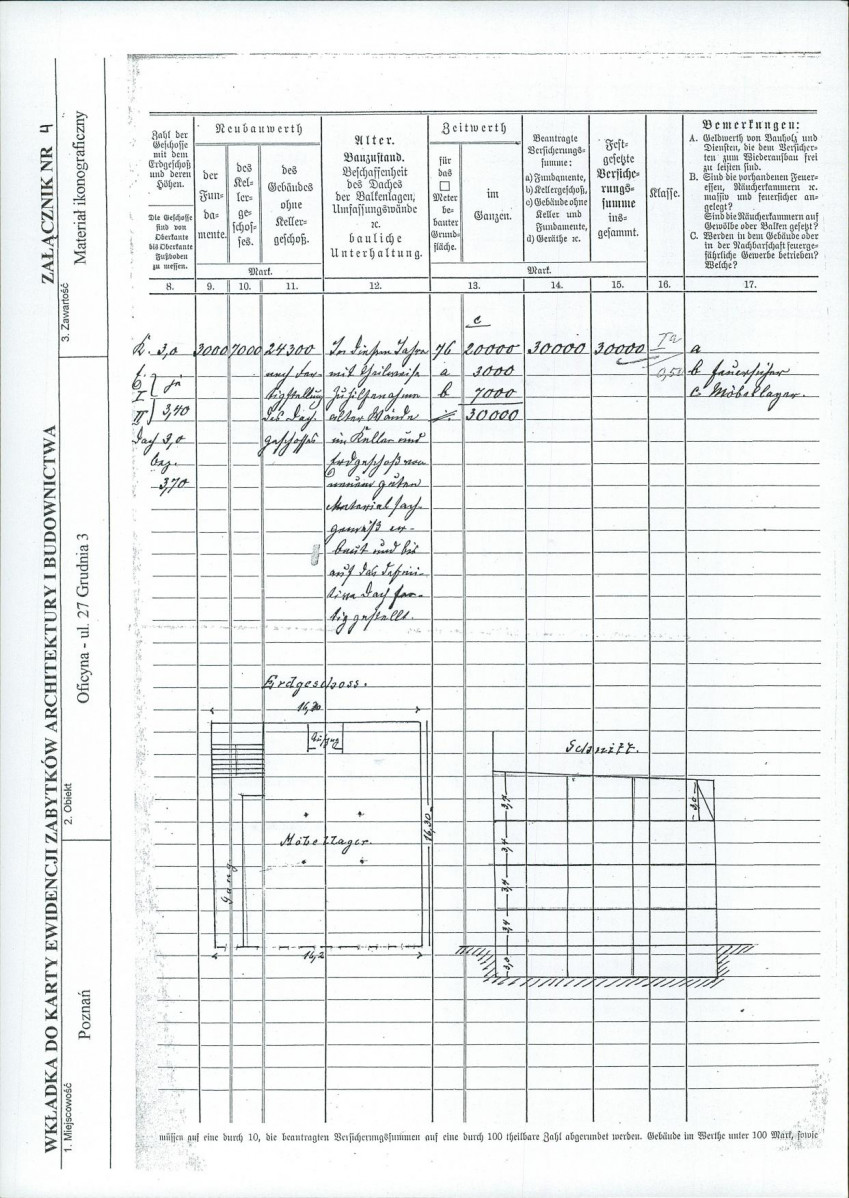 WKŁADKA DO KARTY EWIDENCJI ZABYTKÓW ARCHITEKTURY I BUDOWNICTWA
ZAŁĄCZNIK NR 4
1. Miejscowość
Poznań
2. Obiekt
Oficyna - ul. 27 Grudnia 3
3. Zawartość
Materiał ikonograficzny
Zahl der
Geschosse
mit dem
Erdgeschoß
und deren
Höhen.
Die Geschosse
sind von
Oberkante
bis Oberkante
Fußboden
zu messen.
Neubauwerth
der
Fun-
da-
mente.
des
Kel-
ler-
ge-
schos-
ses.
des
Gebäudes
ohne
Keller-
geschoß.
Mark.
Alter.
Bauzustand.
Beschaffenheit
des Daches
der Balkenlagen,
Umfassungswände
ꝛc.
bauliche
Unterhaltung.
Zeitwerth
für
das
□
Meter
be-
bauter
Grund-
fläche.
im
Ganzen.
Beantragte
Versicherungs-
summe:
a) Fundamente,
b) Kellergeschoß,
c) Gebäude ohne
Keller und
Fundamente,
d) Geräthe ꝛc.
Fest-
gesetzte
Versiche-
rungs-
summe
ins-
gesammt.
Mark.
Klasse.
Bemerkungen:
A. Geldwerth von Bauholz und
Diensten, die dem Versicher-
ten zum Wiederaufbau frei
zu leisten sind.
B. Sind die vorhandenen Feuer-
essen, Räucherkammern ꝛc.
massiv und feuersicher an-
gelegt?
Sind die Räucherkammern auf
Gewölbe oder Balken gesetzt?
C. Werden in dem Gebäude oder
in der Nachbarschaft feuerge-
fährliche Gewerbe betrieben?
Welche?
8. 9. 10. 11. 12. 13. 14. 15. 16. 17.
c
K. 3,0 3000 7000 24300 In diesem Jahre 76 20000 30000 30000 a
nach Fer- mit theilweiser a 3000 b feuersicher
I je tigstellung Zuhilfenahme b 7000 c Möbellager.
II 3,40 des Dach- alter Wände 30000
Dach 3,0 geschosses im Keller und
bez. Erdgeschoß von
3,70 neuem guten
Material sach-
gemäß er-
baut und bis
auf das
Dach fer-
tig gestellt.
Erdgeschoss.
16,20
Aufzug
Möbellager.
Gang
16,30
16,2
Schnitt.
3,7
3,4
3,4
3,4
3,0
3,0
müssen auf eine durch 10, die beantragten Versicherungssummen auf eine durch 100 theilbare Zahl abgerundet werden. Gebäude im Werthe unter 100 Mark, sowie